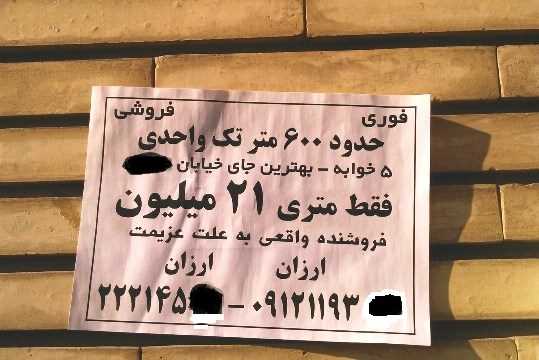 فوری فروشی
حدود ۶۰۰ متر تک واحدی
۵ خوابه - بهترین جای خیابان
فقط متری ۲۱ میلیون
فروشنده واقعی به علت عزیمت
ارزان ارزان
۰۹۱۲۱۱۹۳ - ۲۲۲۱۴۵